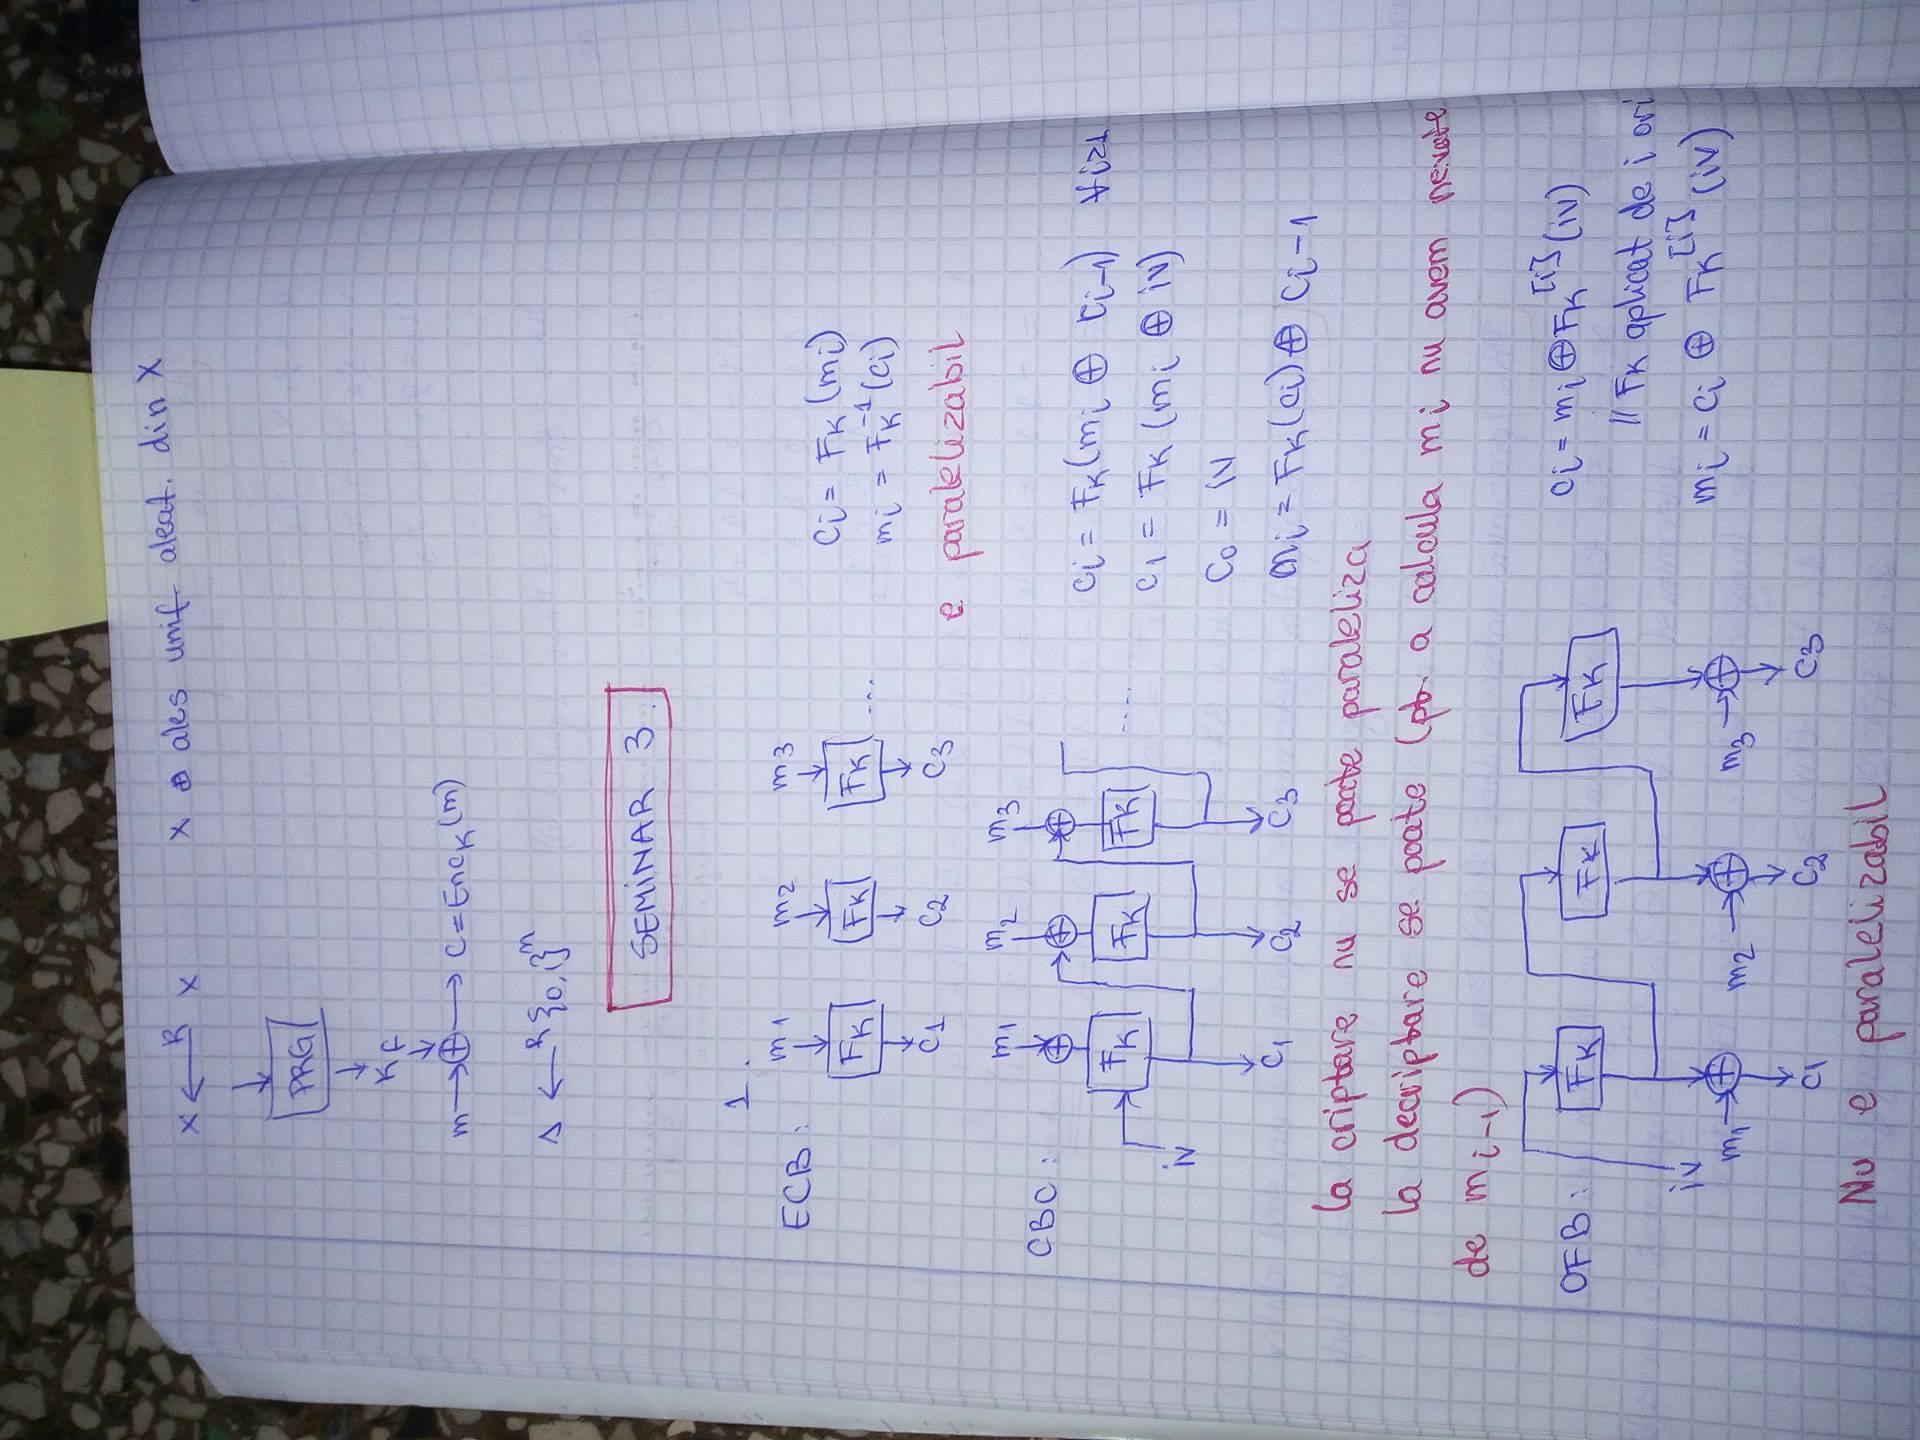 x ←R X    x ales unif aleat. din X
PRG
K f
m → ⊕ → C = Enck(m)
s ← R {0,1}^n
SEMINAR 3
1.
ECB: m1 m2 m3
FK FK FK ....
C1 C2 C3
Ci = FK(mi)
mi = FK^-1(Ci)
e paralelizabil
CBC: m1 m2 m3
⊕ ⊕ ⊕
FK FK FK ....
iv
C1 C2 C3
Ci = FK(mi ⊕ Ci-1) ∀ i≥1
C1 = FK(mi ⊕ iv)
C0 = IV
mi = FK(ci) ⊕ Ci-1
la criptare nu se poate paraleliza
la decriptare se poate (pt. a calcula mi nu avem nevoie
de mi-1)
OFB: FK FK FK
iv
m1 → ⊕ m2 → ⊕ m3 → ⊕
C1 C2 C3
ci = mi ⊕ FK^[i](iv)
// FK aplicat de i ori
mi = ci ⊕ FK^[i](iv)
Nu e paralelizabil